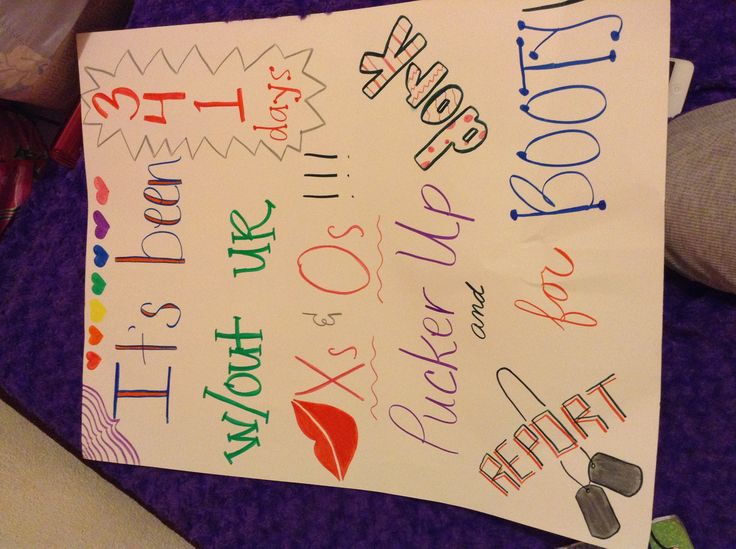 It's been 341 days
w/out ur
Xs & Os !!!
Pucker Up
and
REPORT for BOOTY